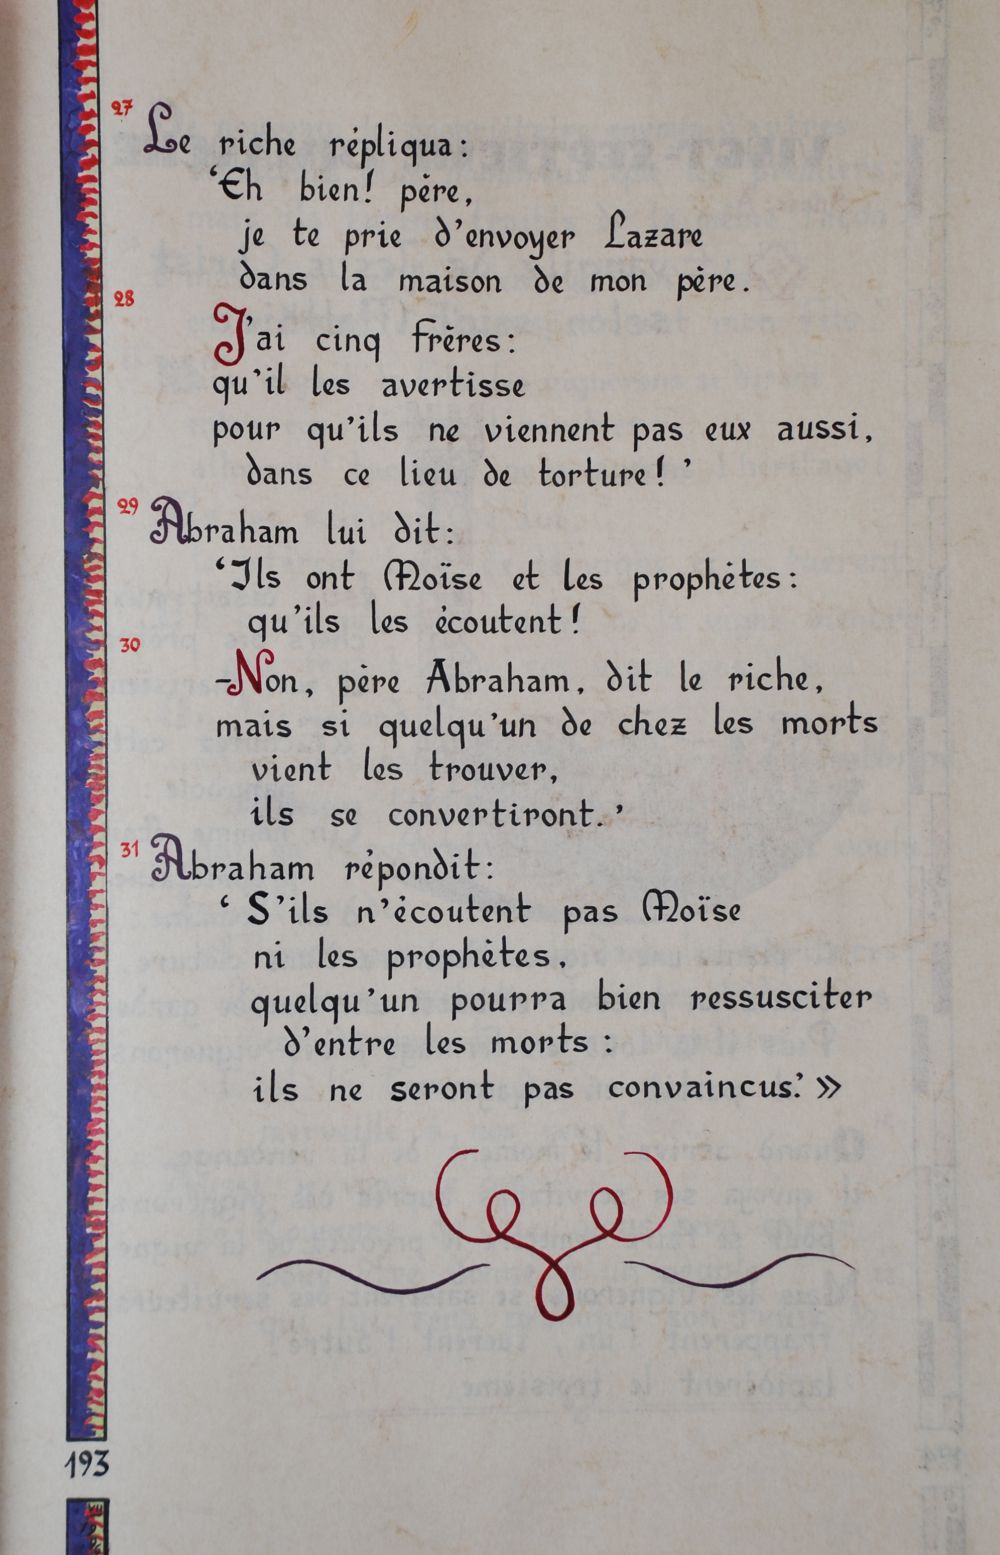 27
Le riche répliqua :
‘Eh bien! père,
je te prie d’envoyer Lazare
dans la maison de mon père.
28
J’ai cinq frères :
qu’il les avertisse
pour qu’ils ne viennent pas eux aussi,
dans ce lieu de torture! ’
29
Abraham lui dit :
‘Ils ont Moïse et les prophètes :
qu’ils les écoutent!
30
-Non, père Abraham, dit le riche,
mais si quelqu’un de chez les morts
vient les trouver,
ils se convertiront. ’
31
Abraham répondit :
‘ S’ils n’écoutent pas Moïse
ni les prophètes,
quelqu’un pourra bien ressusciter
d’entre les morts :
ils ne seront pas convaincus.’ »
193